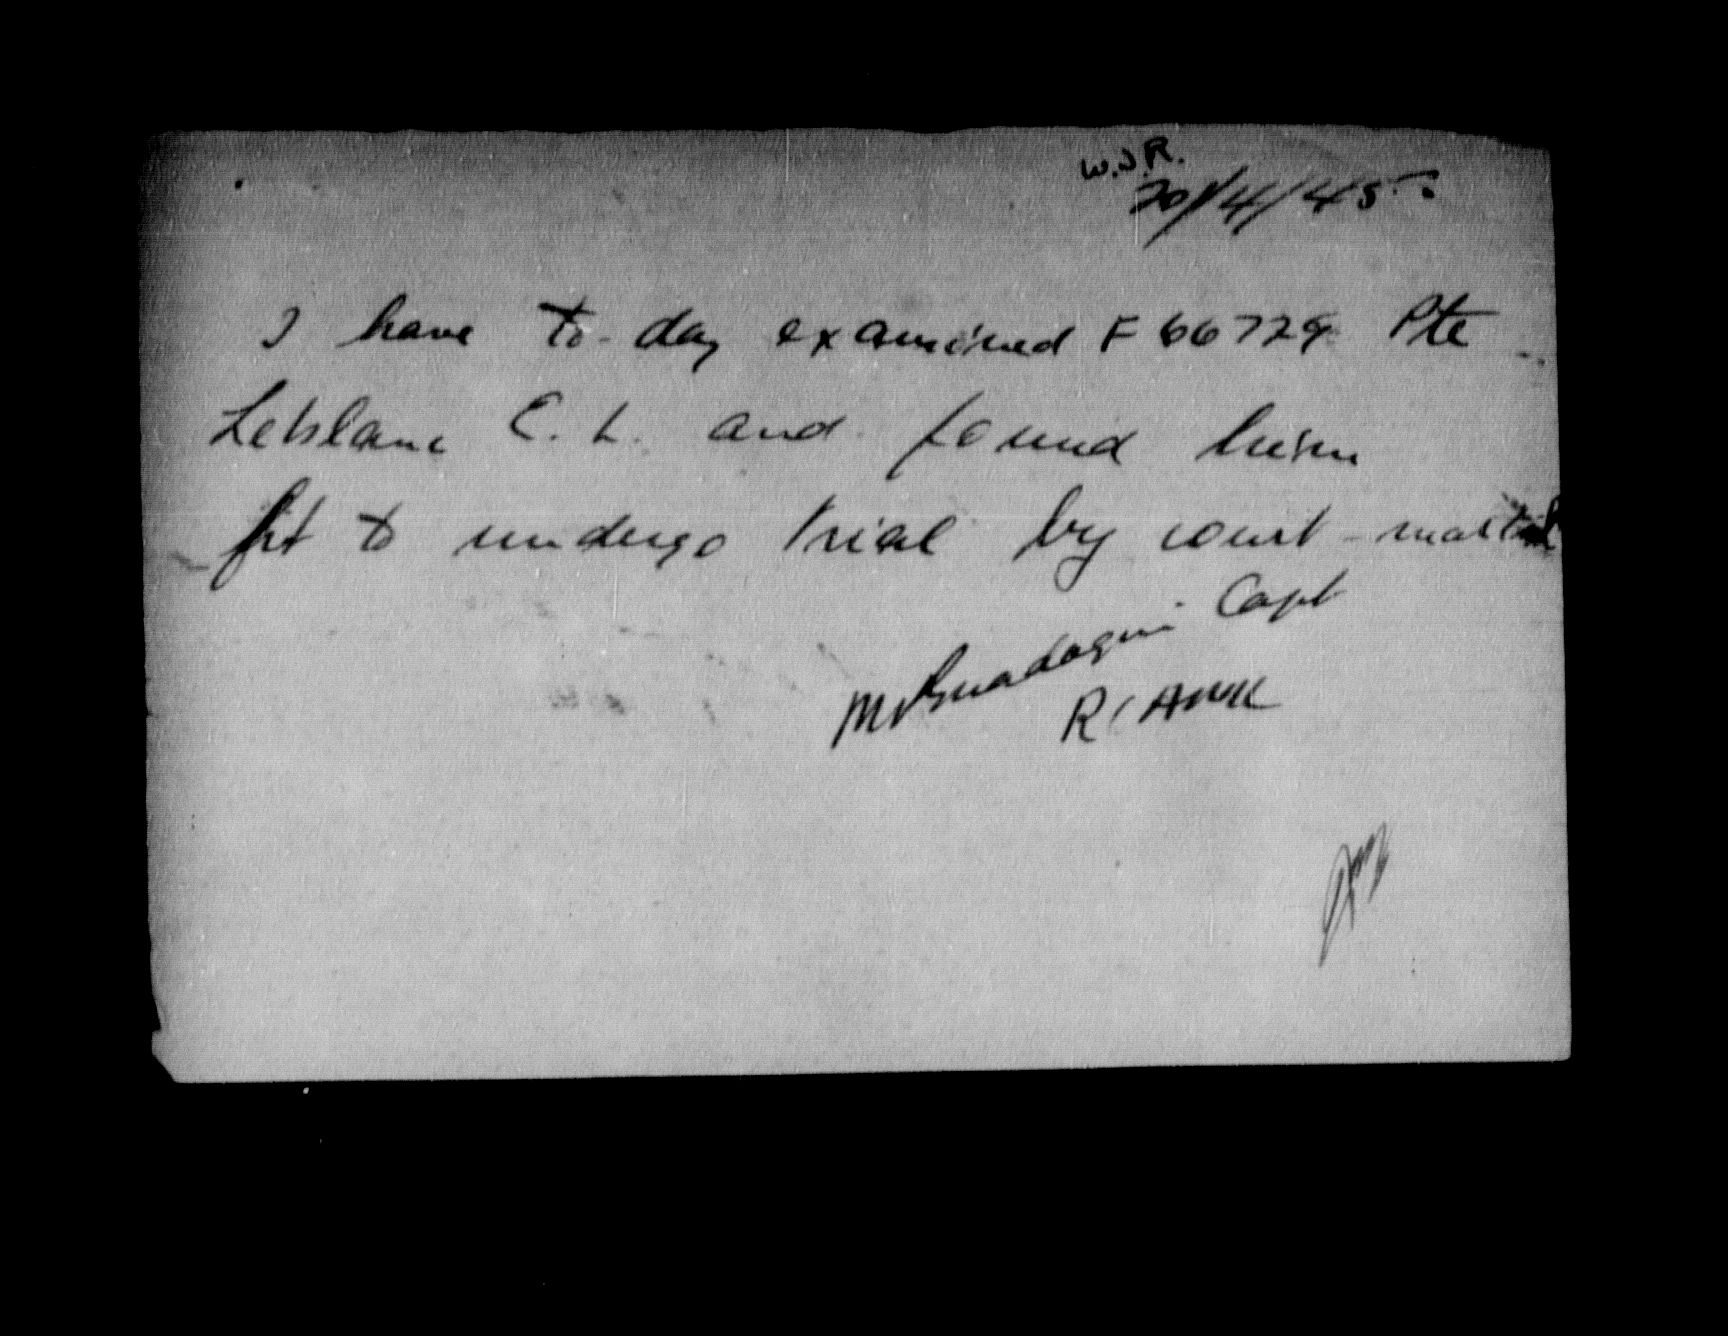 W.J.R.
20/4/45
I have to-day examined F 66729 Pte
Leblanc C. L. and found him
fit to undergo trial by court-martial
Capt
RCAMC